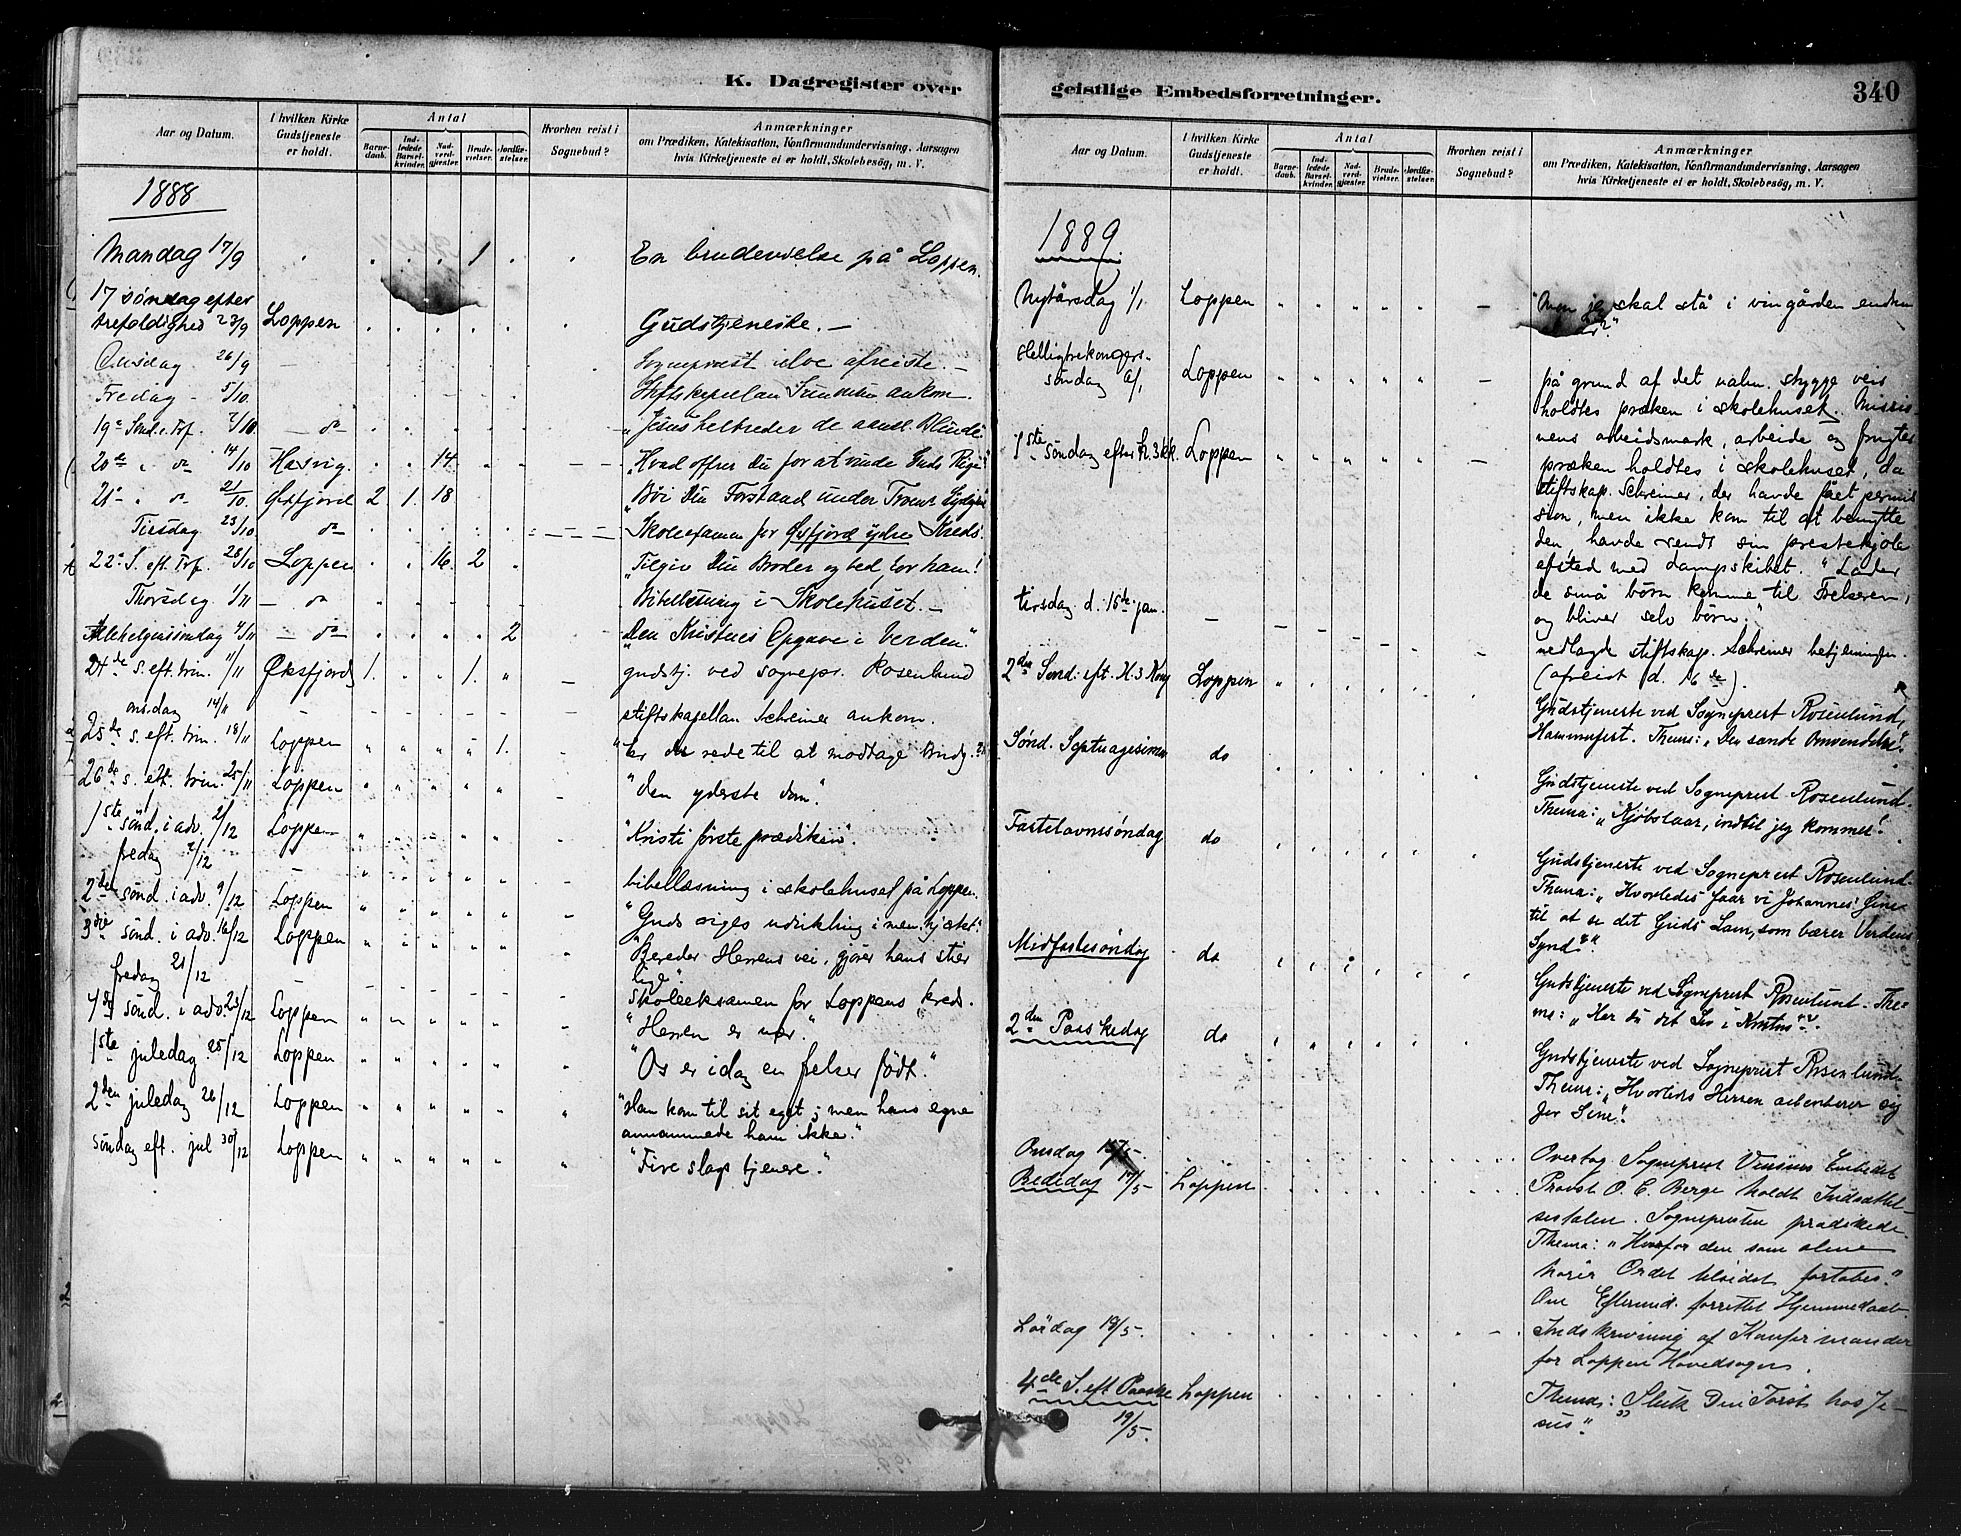 K. Dagregister over
Aar og Datum.
I hvilken Kirke
Gudstjeneste
er holdt.
Antal
Barne-
daab.
Ind-
ledede
Barsel-
kvinder.
Nad-
verd-
gjæster.
Brude-
vielser.
Jordfæ-
stelser.
Hvorhen reist i
Sognebud?
Anmærkninger
om Prædiken, Katekisation, Konfirmandundervisning, Aarsagen
hvis Kirketjeneste ei er holdt, Skolebesög, m. V.
1888
Mandag 17/9 1 En brudevielse på Loppen.
17 søndag efter
trefoldighed 23/9 Loppen Gudstjeneste. —
Onsdag 26/9 — Sogneprest afreiste. —
Fredag - 5/10. Stiftskapellan ankom.
19e Sønd. e. Trf. 7/10. — do „Jesus helbreder de aandl. Blinde.
20de " do 14/10 Hasvig 14. — — „Hvad offrer Du for at vinde Guds Rige?"
21e " do 21/10. Øxfjord 2 1. 18 „Bøi Din Forstand under Troens
Tirsdag 23/10 do — — — Skoleexamen for Øxfjord ydre Kreds.
22e S. eft. Trf. 28/10 Loppen 16. 2 „Tilgiv Din Broder og bed for ham!
Thorsdag 1/11 — do Bibellæsning i Skolehuset. —
Allehelgenssøndag 4/11 — do 2 „Den Kristnes Opgave i Verden."
24de s. eft. trin. 11/11 Øksfjord 1. 1. — gudstj. ved sognepr. Rosenlund
onsdag 14/11 — stiftskapellan Schreiner ankom.
25de s. eft. trin. 18/11 Loppen 1. "er du rede til at modtage
26de s. eft. trin. 25/11 Loppen — "den yderste dom".
1ste sønd. i adv. 2/12 Loppen — "Kristi første prædiken".
fredag 7/12 — bibellæsning i skolehuset på Loppen.
2den sønd. i adv. 9/12 Loppen "Guds riges udvikling i men. hjertet".
3die sønd. i adv. 16/12 Loppen "Bereder Herrens vei, gjører hans stier
lige".
fredag 21/12 — skoleeksamen for Loppens kreds.
4de sønd. i adv. 23/12 Loppen "Herren er nær."
1ste juledag 25/12 Loppen "Os er idag en frelser født."
2den juledag 26/12 Loppen "Han kom til sit eget; men hans egne
annammede ham ikke."
søndag eft. jul 30/12 Loppen "Fire slags tjenere."
geistlige Embedsforretninger.
340
Aar og Datum.
I hvilken Kirke
Gudstjeneste
er holdt.
Antal
Barne-
daab.
Ind-
ledede
Barsel-
kvinder.
Nad-
verd-
gjæster.
Brude-
vielser.
Jordfæ-
stelser.
Hvorhen reist i
Sognebud?
Anmærkninger
om Prædiken, Katekisation, Konfirmandundervisning, Aarsagen
hvis Kirketjeneste ei er holdt, Skolebesög, m. V.
1889.
Nytårsdag 1/1. Loppen — jeg skal stå i vingården endnu
år?"
Helligtrekongers-
søndag 6/1 Loppen — på grund af det ualm. stygge veir
holdtes præken i skolehuset. Missio-
nens arbeidsmark, arbeide og frugter
1ste søndag efter h. 3 kk. Loppen præken holdtes i skolehuset, da
stiftskap. Schreiner, der havde fået permis-
sion, men ikke kom til at benytte
den, havde sendt sin prestekjole
afsted med dampskibet. "Lader
de små børn komme til Frelseren,
og bliver selv børn".
tirsdag d. 15de jan. — nedlagde stiftskap. Schreiner betjeningen.
(afreist d. 16de).
2den Sønd. eft. H. 3 Kong Loppen Gudstjeneste ved Sogneprest Rosenlund,
Hammerfest. Thema: „Den sande Omvendelse".
Sønd. Septuagesima do Gudstjeneste ved Sogneprest Rosenlund.
Thema: „Kjøbslaar, indtil jeg kommer".
Fastelavnssøndag do Gudstjeneste ved Sogneprest Rosenlund.
Thema: „Hvorledes faar vi Johannes'
til at se det Guds Lam, som bærer Verdens
Synd?"
Midfastesøndag do Gudstjeneste ved Sogneprest Rosenlund. The-
ma: „Har du det i Kristus?"
2den Paaskedag do Gudstjeneste ved Sogneprest Rosenlund.
Thema: „Hvorledes Herren aabenbarer sig
for Sine".
Onsdag Overtog Sogneprest Embedet
Bededag 17/5 Loppen Provst O. C. Berge holdt Indsættel-
sestalen. Sognepresten prædikede.
Thema: „Hvorfor den som alene
hører Ordet fortabes."
Om Eftermid. forrettet Hjemmedaab
Lördag 18/5. — Indskrivning af Konfirmander
for Loppen Hovedsogn.
4de S. eft Paaske Loppen
19/5. Thema: „Sluk Din Törst hos Je-
sus".